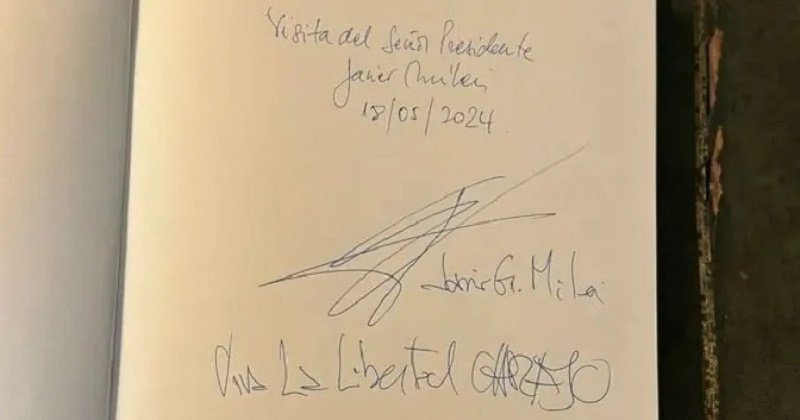 Visita del Señor Presidente
Javier Milei
18/05/2024
Javier G. Milei
Viva La Libertad CARAJO